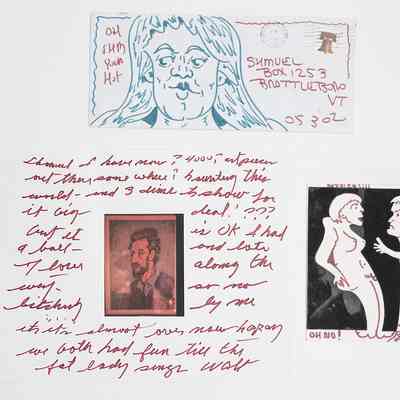 OH
OHM
YOUR
HOT
SHMUEL
BOX 1253
BRATTLEBORO
VT
05302
Shmuel I have now ? 4000 ? art pieces
out there some where! haunting this
world - and 3 dime to show for
it big deal! ???
but it is OK I had
a ball - and lots
of love along the
way - so no
bitching by me
its its almost over now hapay
we both had fun till the
fat lady sings Walt
OH NO!